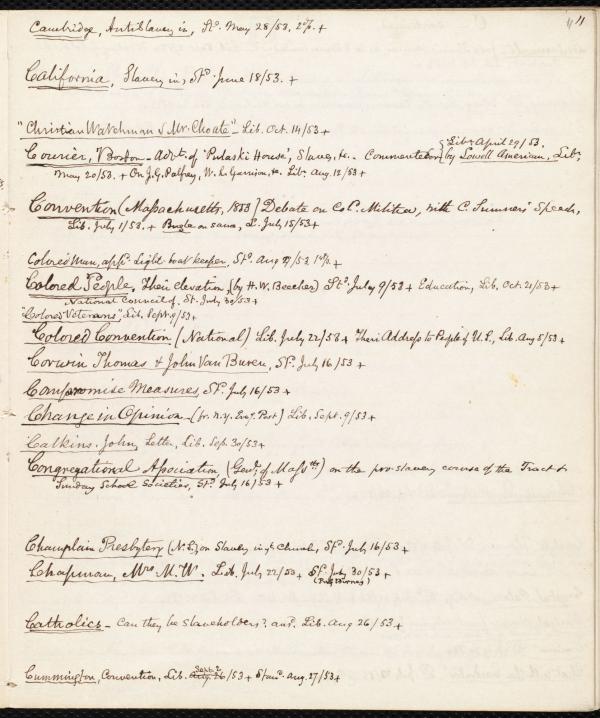 11
Cambridge, Antislavery in, Std. May 28/53. 2 +
California, Slavery in, Std. June 18/53. +
"Christian Watchman & Mr. Choate" - Lib. Oct. 14/53 +
{ Lib. April 29/53.
Courier, Boston - Advt. of 'Pulaski House', Slaves, &c. - Commented on by Lowell American, Lib.
May 20/53. + On J.G. Palfrey, W. L. Garrison, &c. Lib. Aug. 12/53 +
Convention (Massachusetts, 1853) Debate on Col. Militia, with C. Sumner's Speech,
Lib. July 1/53. + Bugle on same, L. July 15/53 +
Colored Man, Light boat keeper, Std. Aug 27/53.
Colored People, Their elevation (by H. W. Beecher) Std. July 9/53 + Education, Lib. Oct. 21/53 +
National Council of, St. July 30/53 +
"Colored Veterans", Lib. Sept. 9/53 +
Colored Convention (National) Lib. July 22/53 + Their Address to People of U.S., Lib. Aug 5/53 +
Corwin Thomas & John Van Buren, St. July 16/53 +
Compromise Measures, St. July 16/53 +
Change in Opinion - (fr. N.Y. Evg. Post) Lib. Sept. 9/53 +
Calkins. John, Letter, Lib. Sep. 30/53 +
Congregational Association (Genl. of Massts) on the pro-slavery course of the Tract &
Sunday School Societies, St. July 16/53 +
Champlain Presbytery (N.S.) on Slavery in ye Church, St. July 16/53 +
Chapman, Mrs M. W. Lib. July 22/53 + St. July 30/53 +
Catholics - Can they be slaveholders? ans. Lib. Aug 26/53 +
Sept. 2
Cummington, Convention, Lib. Aug. 26/53 + Stand. Aug. 27/53 +